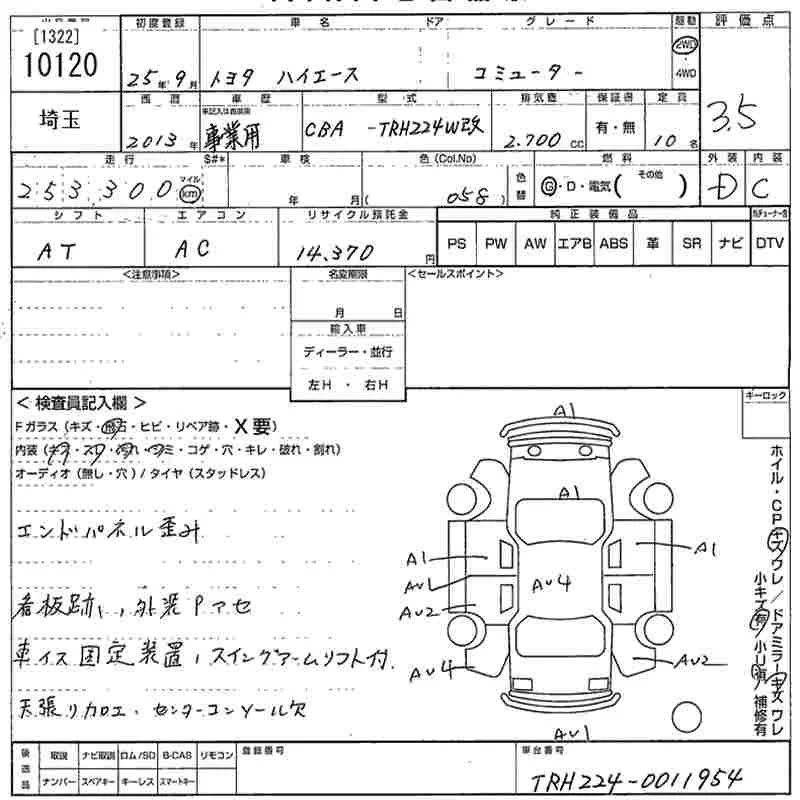 [1322]
10120
初度登録 車名 ドア グレード 駆動 評価点
25年9月 トヨタ ハイエース コミューター 2WD・4WD
埼玉 西暦 車歴 型式 排気量 保証書 定員
2013年 未記入は自家用 事業用 CBA -TRH224W改 2.700cc 有・無 10名 3.5
走行 S#* 車検 色(Col.No) 色替 燃料 外装 内装
253300 マイル km 年 月( 058) G・D・電気( その他 ) D C
シフト エアコン リサイクル預託金 純正装備品
AT AC 14.370円 PS PW AW エアB ABS 革 SR ナビ DTV
<注意事項> 名変期限 <セールスポイント>
月 日
輸入車
ディーラー・並行
左H ・ 右H
< 検査員記入欄 > キーロック
Fガラス(キズ・飛石・ヒビ・リペア跡・X要)
内装(キズ・スレ・汚れ・シミ・コゲ・穴・キレ・破れ・割れ)
オーディオ(無し・穴)/タイヤ(スタッドレス)
エンドパネル歪み
看板跡、外装Pアセ
車イス固定装置、スイングアームリフト付.
天張リカロエ、センターコンソール欠
A1
A1
A1 A1
AU1
AU4
AU2
AU4 AU2
AU1
ホイル・CPキズワレ/ドアミラーキズワレ
小キズ有 小凹有 補修有
後送品 取説 ナビ取説 ロム/SD B-CAS リモコン 登録番号 車台番号
ナンバー スペアキー キーレス スマートキー TRH224-0011954